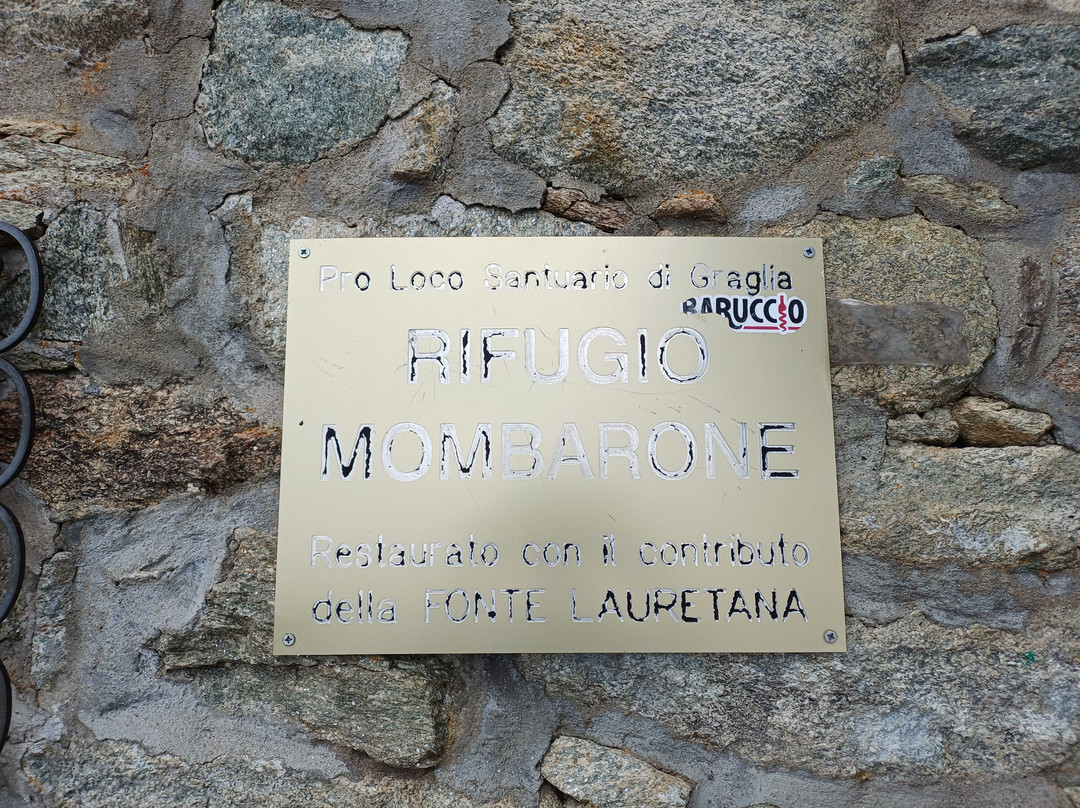 Pro Loco Santuario di Graglia
BARUCCIO
RIFUGIO
MOMBARONE
Restaurato con il contributo
della FONTE LAURETANA